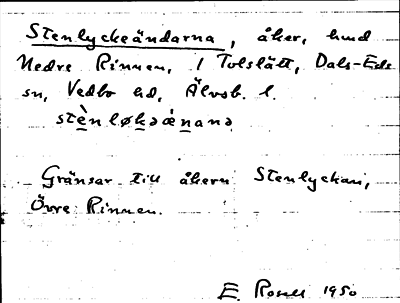 Stenlyckeändarna, åker, hmd
Nedre Rinnen, 1 Tolslätt, Dals-Eds
sn, Vedbo hd, Älvsb. l.
stènløkǝǽnanǝ
Gränsar till åkern Stenlyckan,
Övre Rinnen.
E. 1950